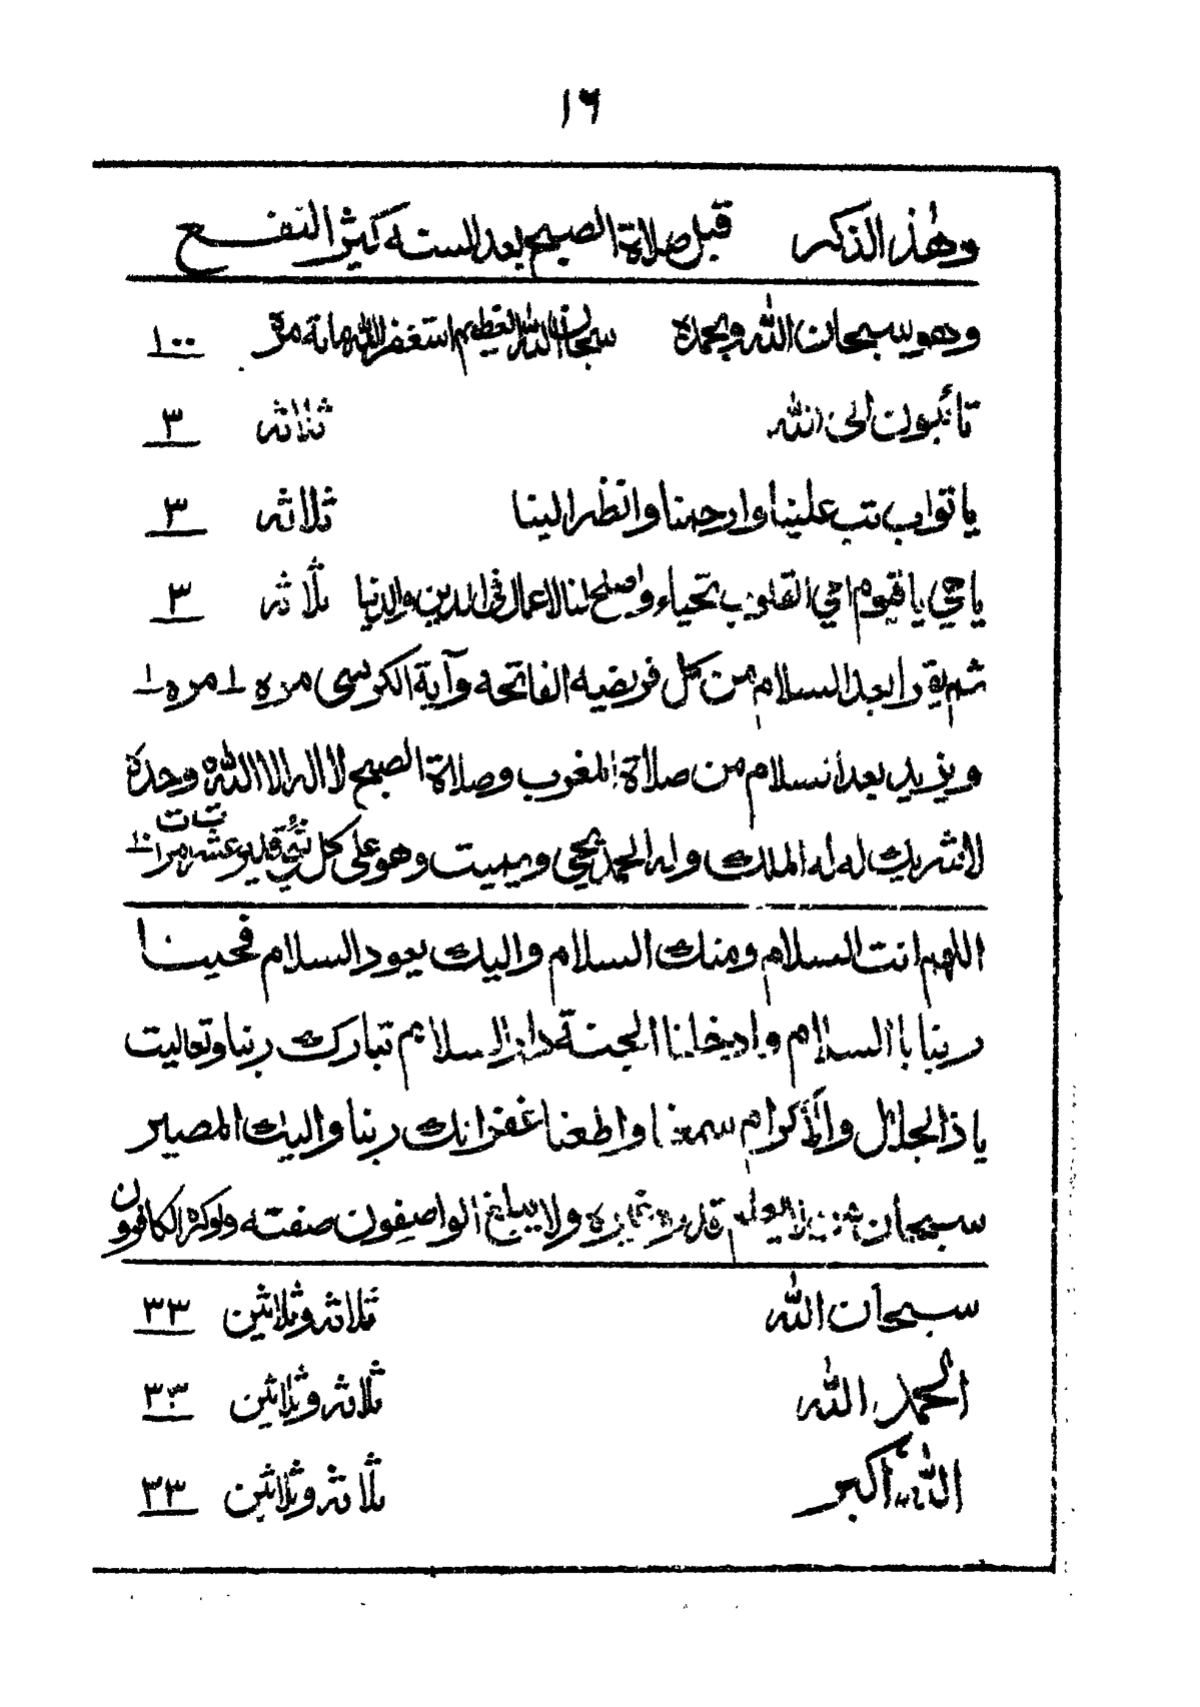 ١٦
وهٰذ الذكر قبل صلاة الصبح بعد السنه كثير النفع
وهو سبحان الله وبحمده سبحان الله العظيم استغفر الله مائة مرة ١٠٠
تائبون الى الله ثلاثه ٣
يا تواب تب علينا وارحمنا وانظر الينا ثلاثه ٣
يا حي يا قيوم احي القلوب تحياء واصلح لنا الاعمال في الدين والدنيا ثلاثه ٣
ثم يقرا بعد السلام من كل فريضه الفاتحه وآية الكرسى مره ١ مره ١
ويزيد بعد السلام من صلاة المغرب وصلاة الصبح لا اله الا الله وحده
لا شريك له له الملك وله الحمد يحي ويميت وهو على كل شئ قدير عشر مرات ١٠
اللهم انت السلام ومنك السلام واليك يعود السلام فحينا
ربنا باالسلام وادخلنا الجنة دار السلام تبارك ربنا وتعاليت
يا ذالجلال والأكرام سمعنا واطعنا غفرانك ربنا واليك المصير
سبحان من لا يعلم قدره غيره ولا يبلغ الواصفون صفته ولوكره الكافرون
سبحان الله ثلاثه وثلاثين ٣٣
الحمد الله ثلاثه وثلاثين ٣٣
الله أكبر ثلاثه وثلاثين ٣٣